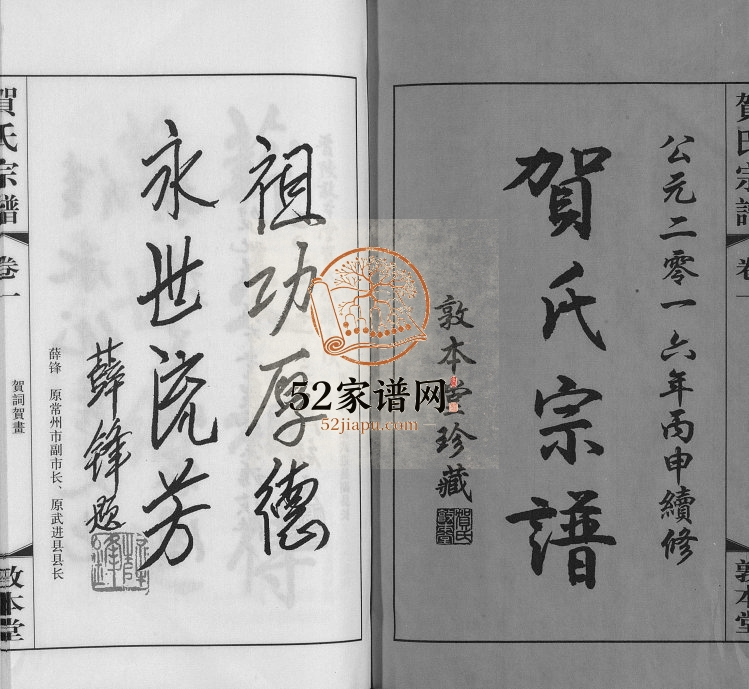 公元二零一六年丙申續修
賀氏宗譜
敦本堂珍藏
賀氏
敦本堂
賀氏宗譜
卷一
敦本堂
祖功厚德
永世流芳
薛锋题
薛锋 原常州市副市长、原武进县县长
賀詞賀畫
賀氏宗譜
卷一
敦本堂
52家谱网
52jiapu.com